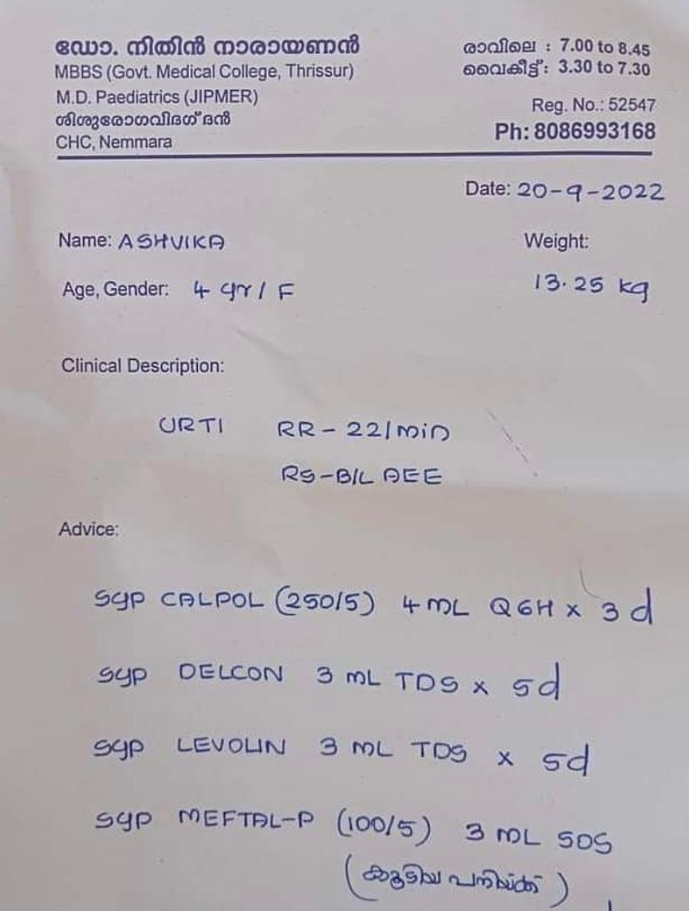 ഡോ. നിതിൻ നാരായണൻ
MBBS (Govt. Medical College, Thrissur)
M.D. Paediatrics (JIPMER)
ശിശുരോഗവിദഗ്ദൻ
CHC, Nemmara
രാവിലെ : 7.00 to 8.45
വൈകീട്ട് : 3.30 to 7.30
Reg. No.: 52547
Ph: 8086993168
Date: 20-9-2022
Name: ASHVIKA
Weight:
13.25 kg
Age, Gender: 4 yr / F
Clinical Description:
URTI RR - 22/min
RS - B/L AEE
Advice:
Syp CALPOL (250/5) 4 mL Q6H x 3 d
Syp DELCON 3 mL TDS x 5d
Syp LEVOLIN 3 mL TDS x 5d
Syp MEFTAL-P (100/5) 3 mL SOS
(കൂടിയ പനിയ്ക്ക്)